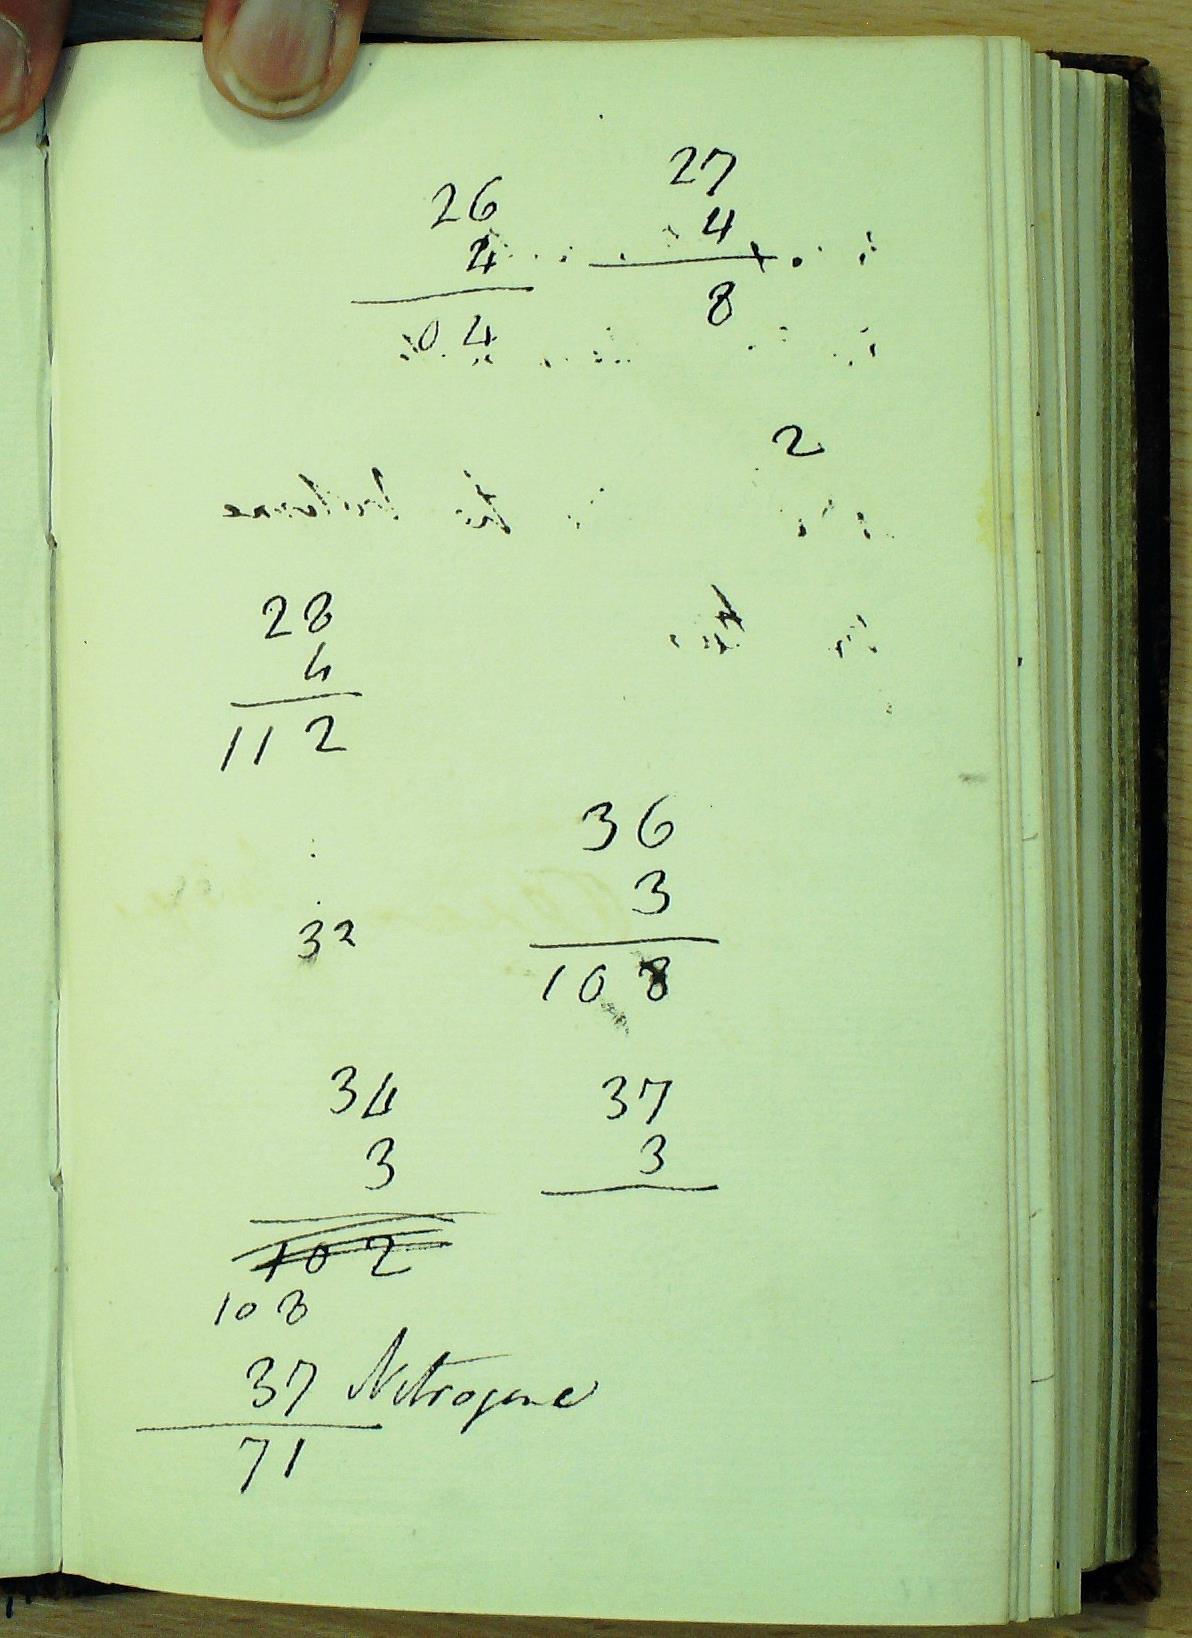 27
26
4
4
8
104
2
28
4
112
36
3
32
108
34 37
3 3
102
108
37 Nitrogene
71